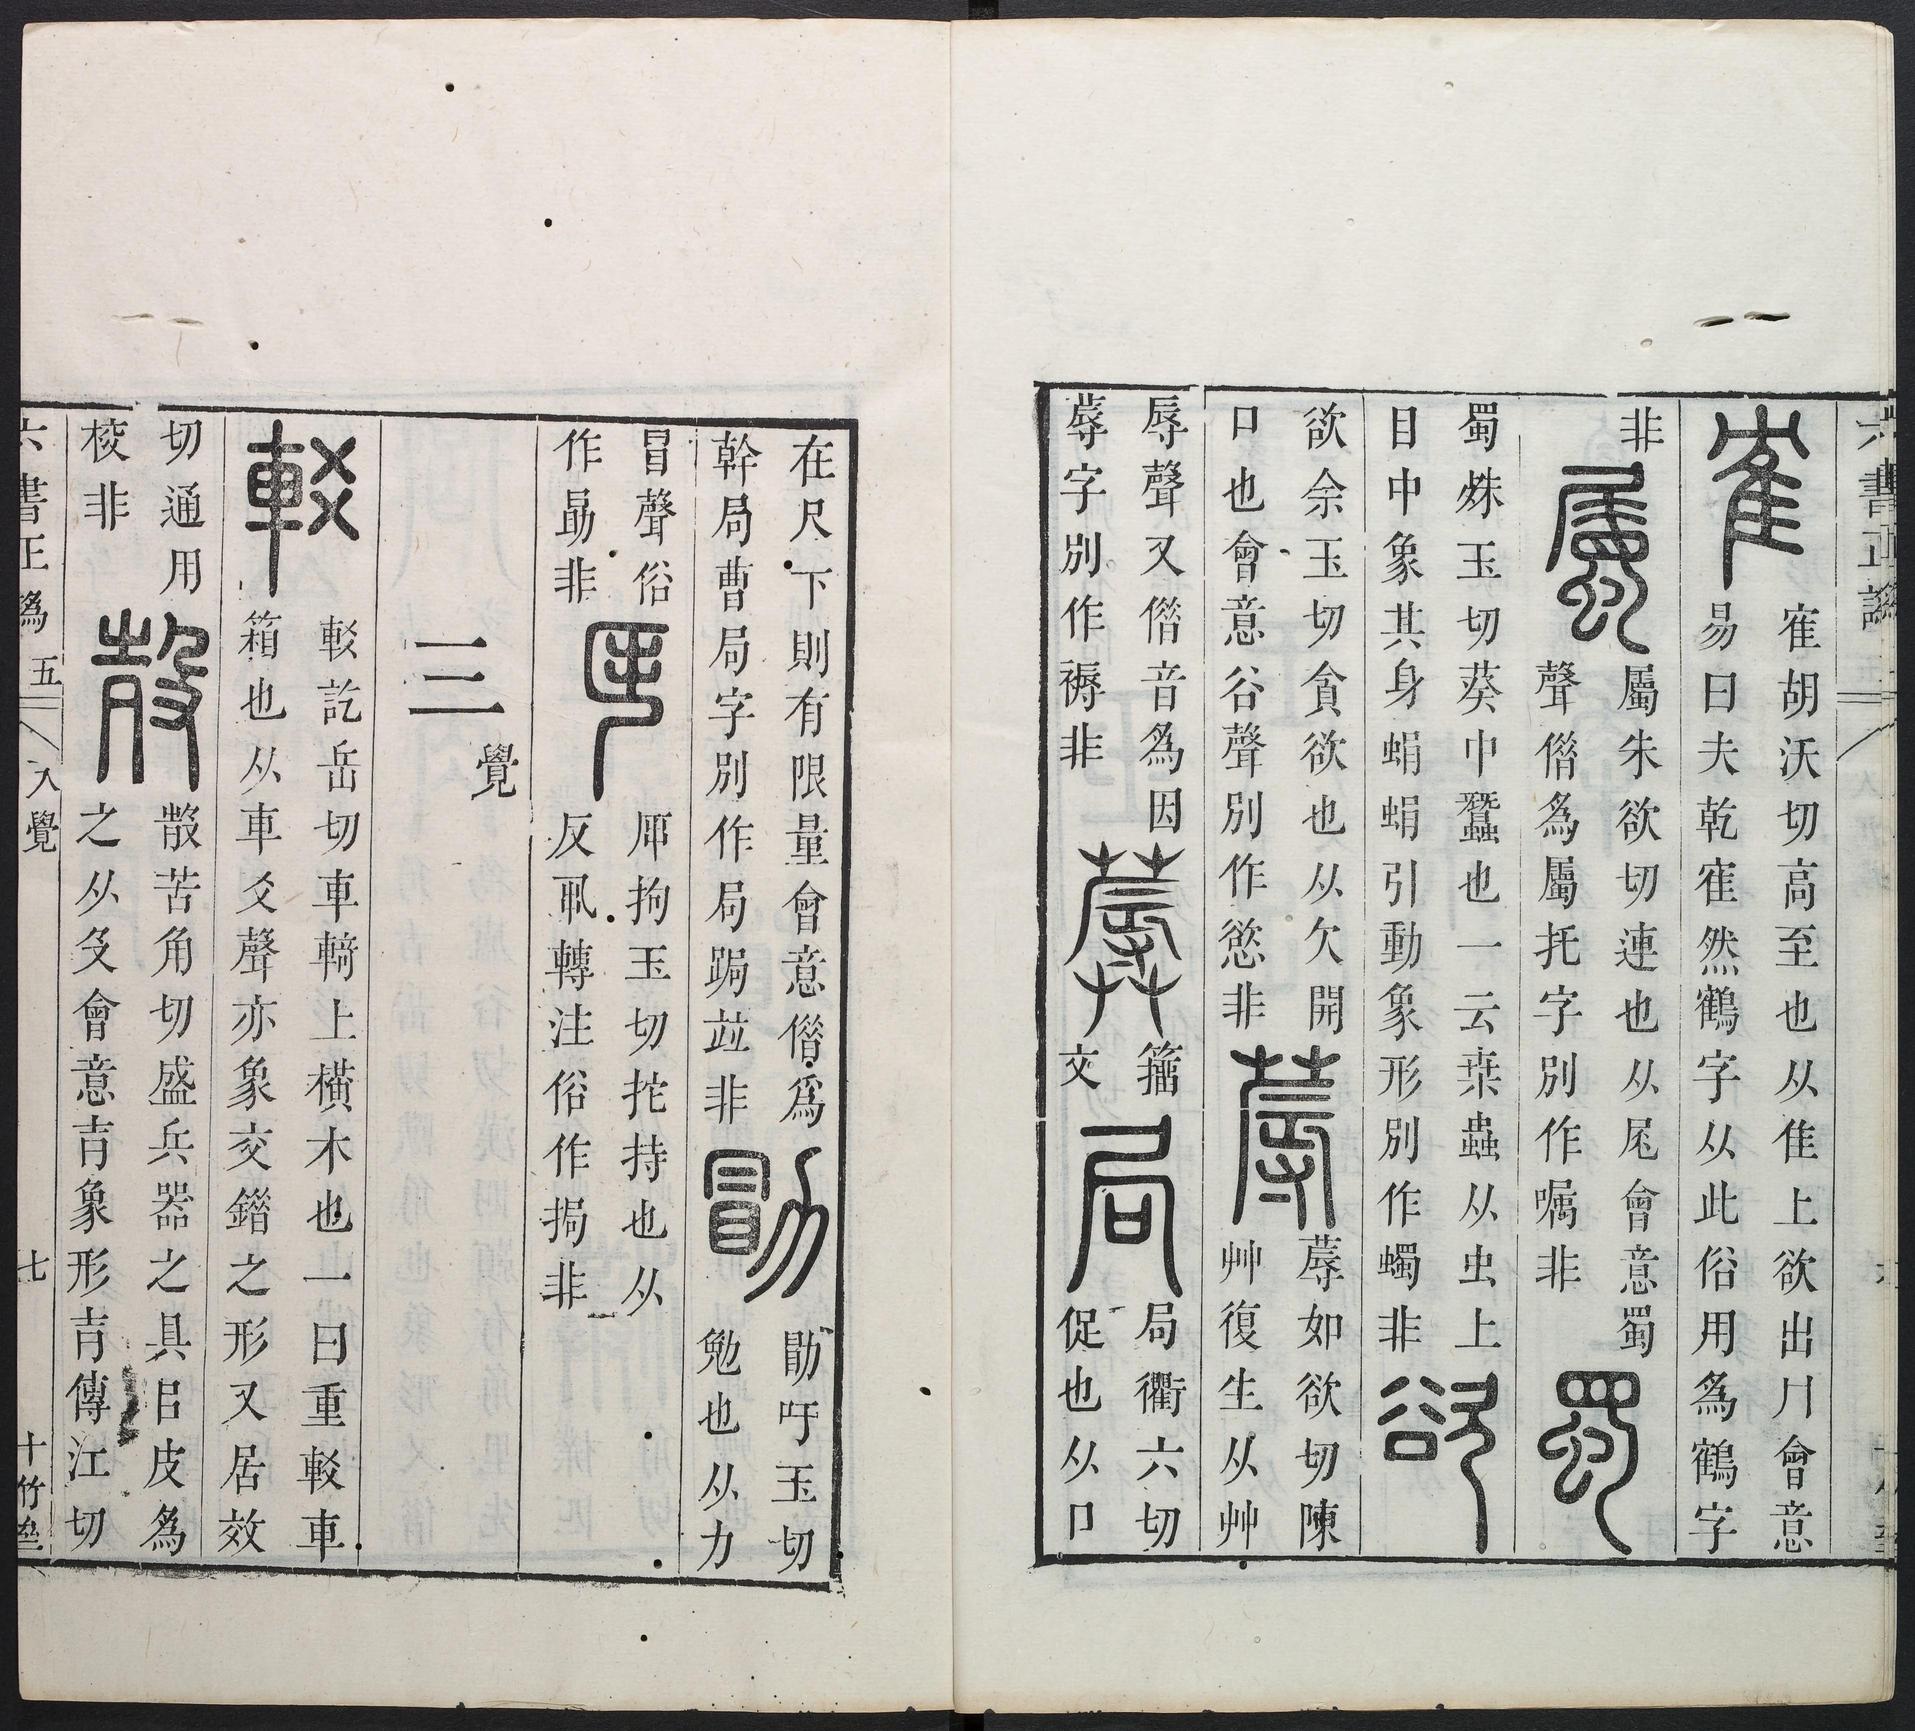 六書正譌
隺
隺胡沃切高至也从隹上欲出冂會意
易曰夫乾隺然鶴字从此俗用為鶴字
非
屬
屬朱欲切連也从尾會意蜀
聲僭為屬托字別作嘱非
蜀
蜀姝玉切葵中蠶也一云桒蟲从虫上
目中象其身蜎蜎引動象形別作蠋非
欲
欲余玉切貪欲也从欠開
口也會意谷聲別作慾非
蓐
蓐如欲切陳
艸復生从艸
辱聲又僭音為因
蓐字別作褥非
籀
文
局
局衢六切
促也从口
在尺下則有限量會意僭為
幹局曹局字別作局跼竝非
勖
勖吁玉切
勉也从力
冒聲俗
作勗非
拘玉切拕持也从
反丮轉注俗作挶非
三
覺
較
較訖岳切車輢上橫木也一曰重較車
箱也从車爻聲亦象交錯之形又居效
切通用
校非
苦角切盛兵器之具㠯皮為
之从殳會意青象形青傳江切
六書正譌 五
入覺
七
十竹